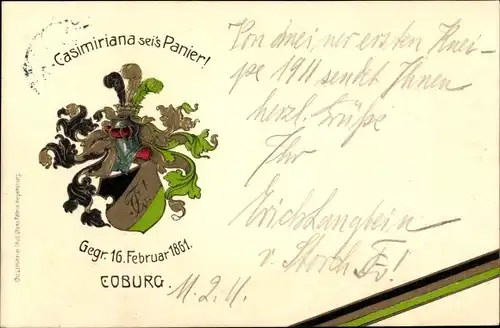 Casimiriana sei's Panier!
Gegr. 16. Februar 1861.
COBURG.
Von meiner ersten Knei-
pe 1911 sendet Ihnen
herzl. Grüße
Ihr
Erich Langbein
v. Storch
11.2.11.